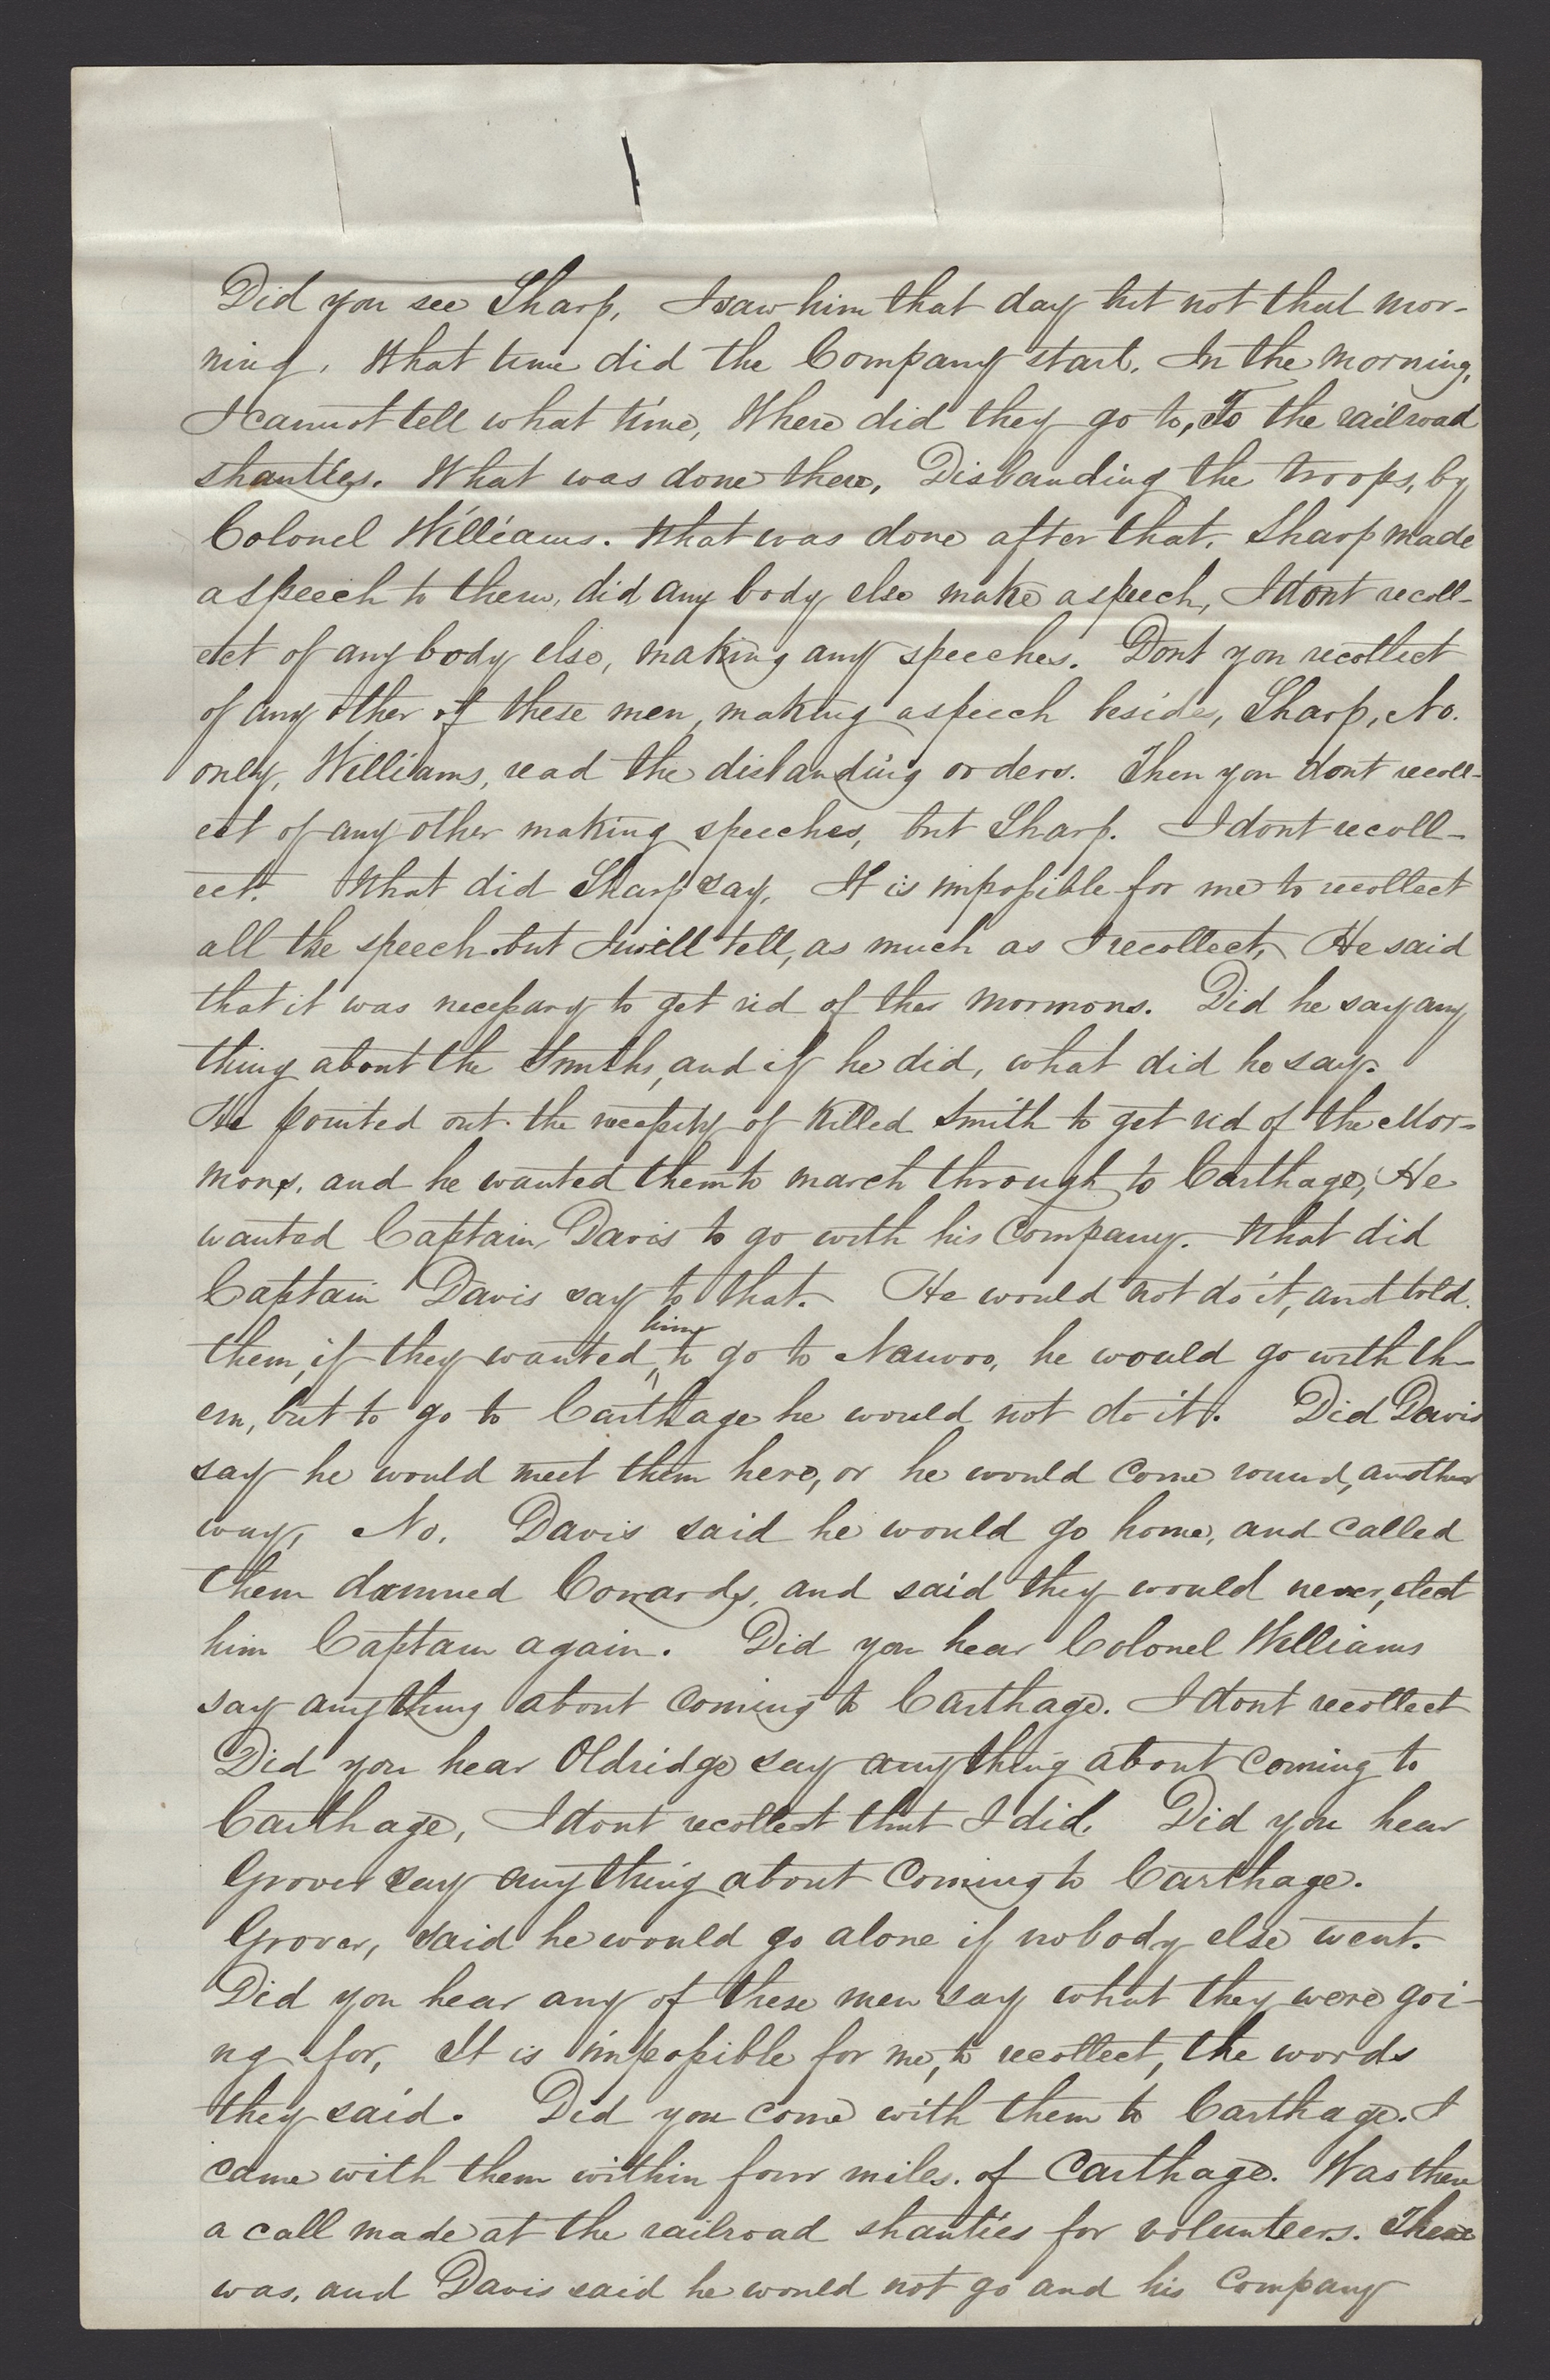 Did you see Sharp, I saw him that day but not that mor-
ning. What time did the Company start. In the morning,
I cannot tell what time, Where did they go to, To the railroad
shanties. What was done there, Disbanding the troops, by
Colonel Williams. What was done after that. Sharp made
a speech to them, did any body else make a speech, I dont recoll-
ect of any body else, making any speeches. Dont you recollect
of any other of these men, making a speech beside, Sharp, No.
only, Williams, read the disbanding orders. Then you dont recoll-
ect of any other making speeches, but Sharp. I dont recoll-
ect. What did Sharp say, It is impossible for me to recollect
all the speech but I will tell, as much as I recollect, He said
that it was necessary to get rid of the mormons. Did he say any
thing about the Smiths, and if he did, what did he say.
He pointed out the necessity of killed Smith to get rid of the Mor-
mons. and he wanted them to march through to Carthage, He
wanted Captain Davis to go with his Company. What did
Captain Davis say to that. He would not do it, and told
them, if they wanted him to go to Nauvoo, he would go with th-
em, but to go to Carthage he would not do it. Did Davis
say he would meet them here, or he would come round, another
way, No. Davis said he would go home, and called
them damned Cowards, and said they would never, elect
him Captain again. Did you hear Colonel Williams
say anything about coming to Carthage. I dont recollect
Did you hear Oldridge say anything about coming to
Carthage, I dont recollect that I did. Did you hear
Grover say anything about Coming to Carthage.
Grover, said he would go alone if nobody else went.
Did you hear any of these men say what they were goi-
ng for, It is impossible for me, to recollect, the words
they said. Did you come with them to Carthage. I
came with them within four miles. of Carthage. Was there
a call made at the railroad shanties for volunteers. There
was, and Davis said he would not go and his Company